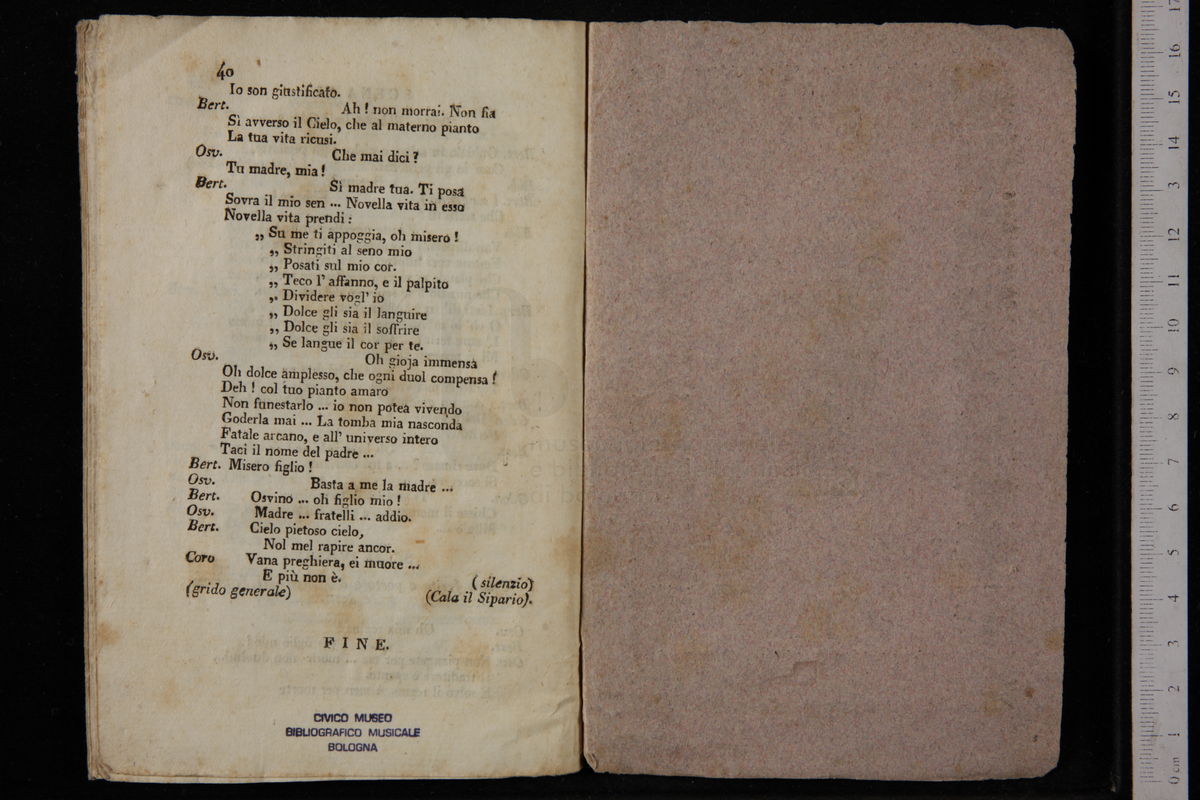 40
Io son giustificato.
Bert. Ah ! non morrai. Non fia
Sì avverso il Cielo, che al materno pianto
La tua vita ricusi.
Osv. Che mai dici ?
Tu madre, mia !
Bert. Sì madre tua. Ti posa
Sovra il mio sen ... Novella vita in esso
Novella vita prendi :
„ Su me ti appoggia, oh misero !
„ Stringiti al seno mio
„ Posati sul mio cor.
„ Teco l' affanno, e il palpito
„ Dividere vogl' io
„ Dolce gli sia il languire
„ Dolce gli sia il soffrire
„ Se langue il cor per te.
Osv. Oh gioja immensa
Oh dolce amplesso, che ogni duol compensa !
Deh ! col tuo pianto amaro
Non funestarlo ... io non potea vivendo
Goderla mai ... La tomba mia nasconda
Fatale arcano, e all' universo intero
Taci il nome del padre ...
Bert. Misero figlio !
Osv. Basta a me la madre ...
Bert. Osvino ... oh figlio mio !
Osv. Madre ... fratelli ... addio.
Bert. Cielo pietoso cielo,
Nol mel rapire ancor.
Coro Vana preghiera, ei muore ...
E più non è. (silenzio)
(grido generale) (Cala il Sipario).
FINE.
CIVICO MUSEO
BIBLIOGRAFICO MUSICALE
BOLOGNA
0 cm 1 2 3 4 5 6 7 8 9 10 11 12 13 14 15 16 17